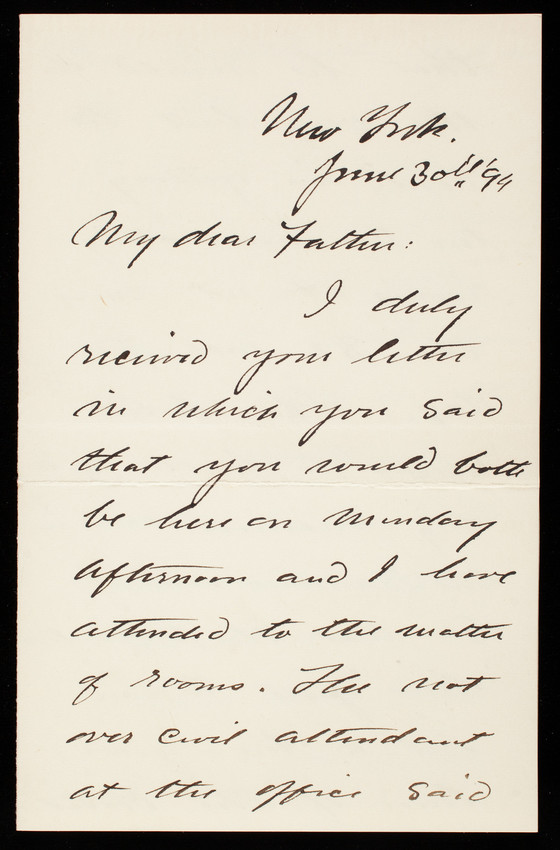 New York.
June 30th '94
My dear Father:
I duly
received your letter
in which you said
that you would both
be here on Monday
afternoon and I have
attended to the matter
of rooms. The not
over civil attendant
at the office said